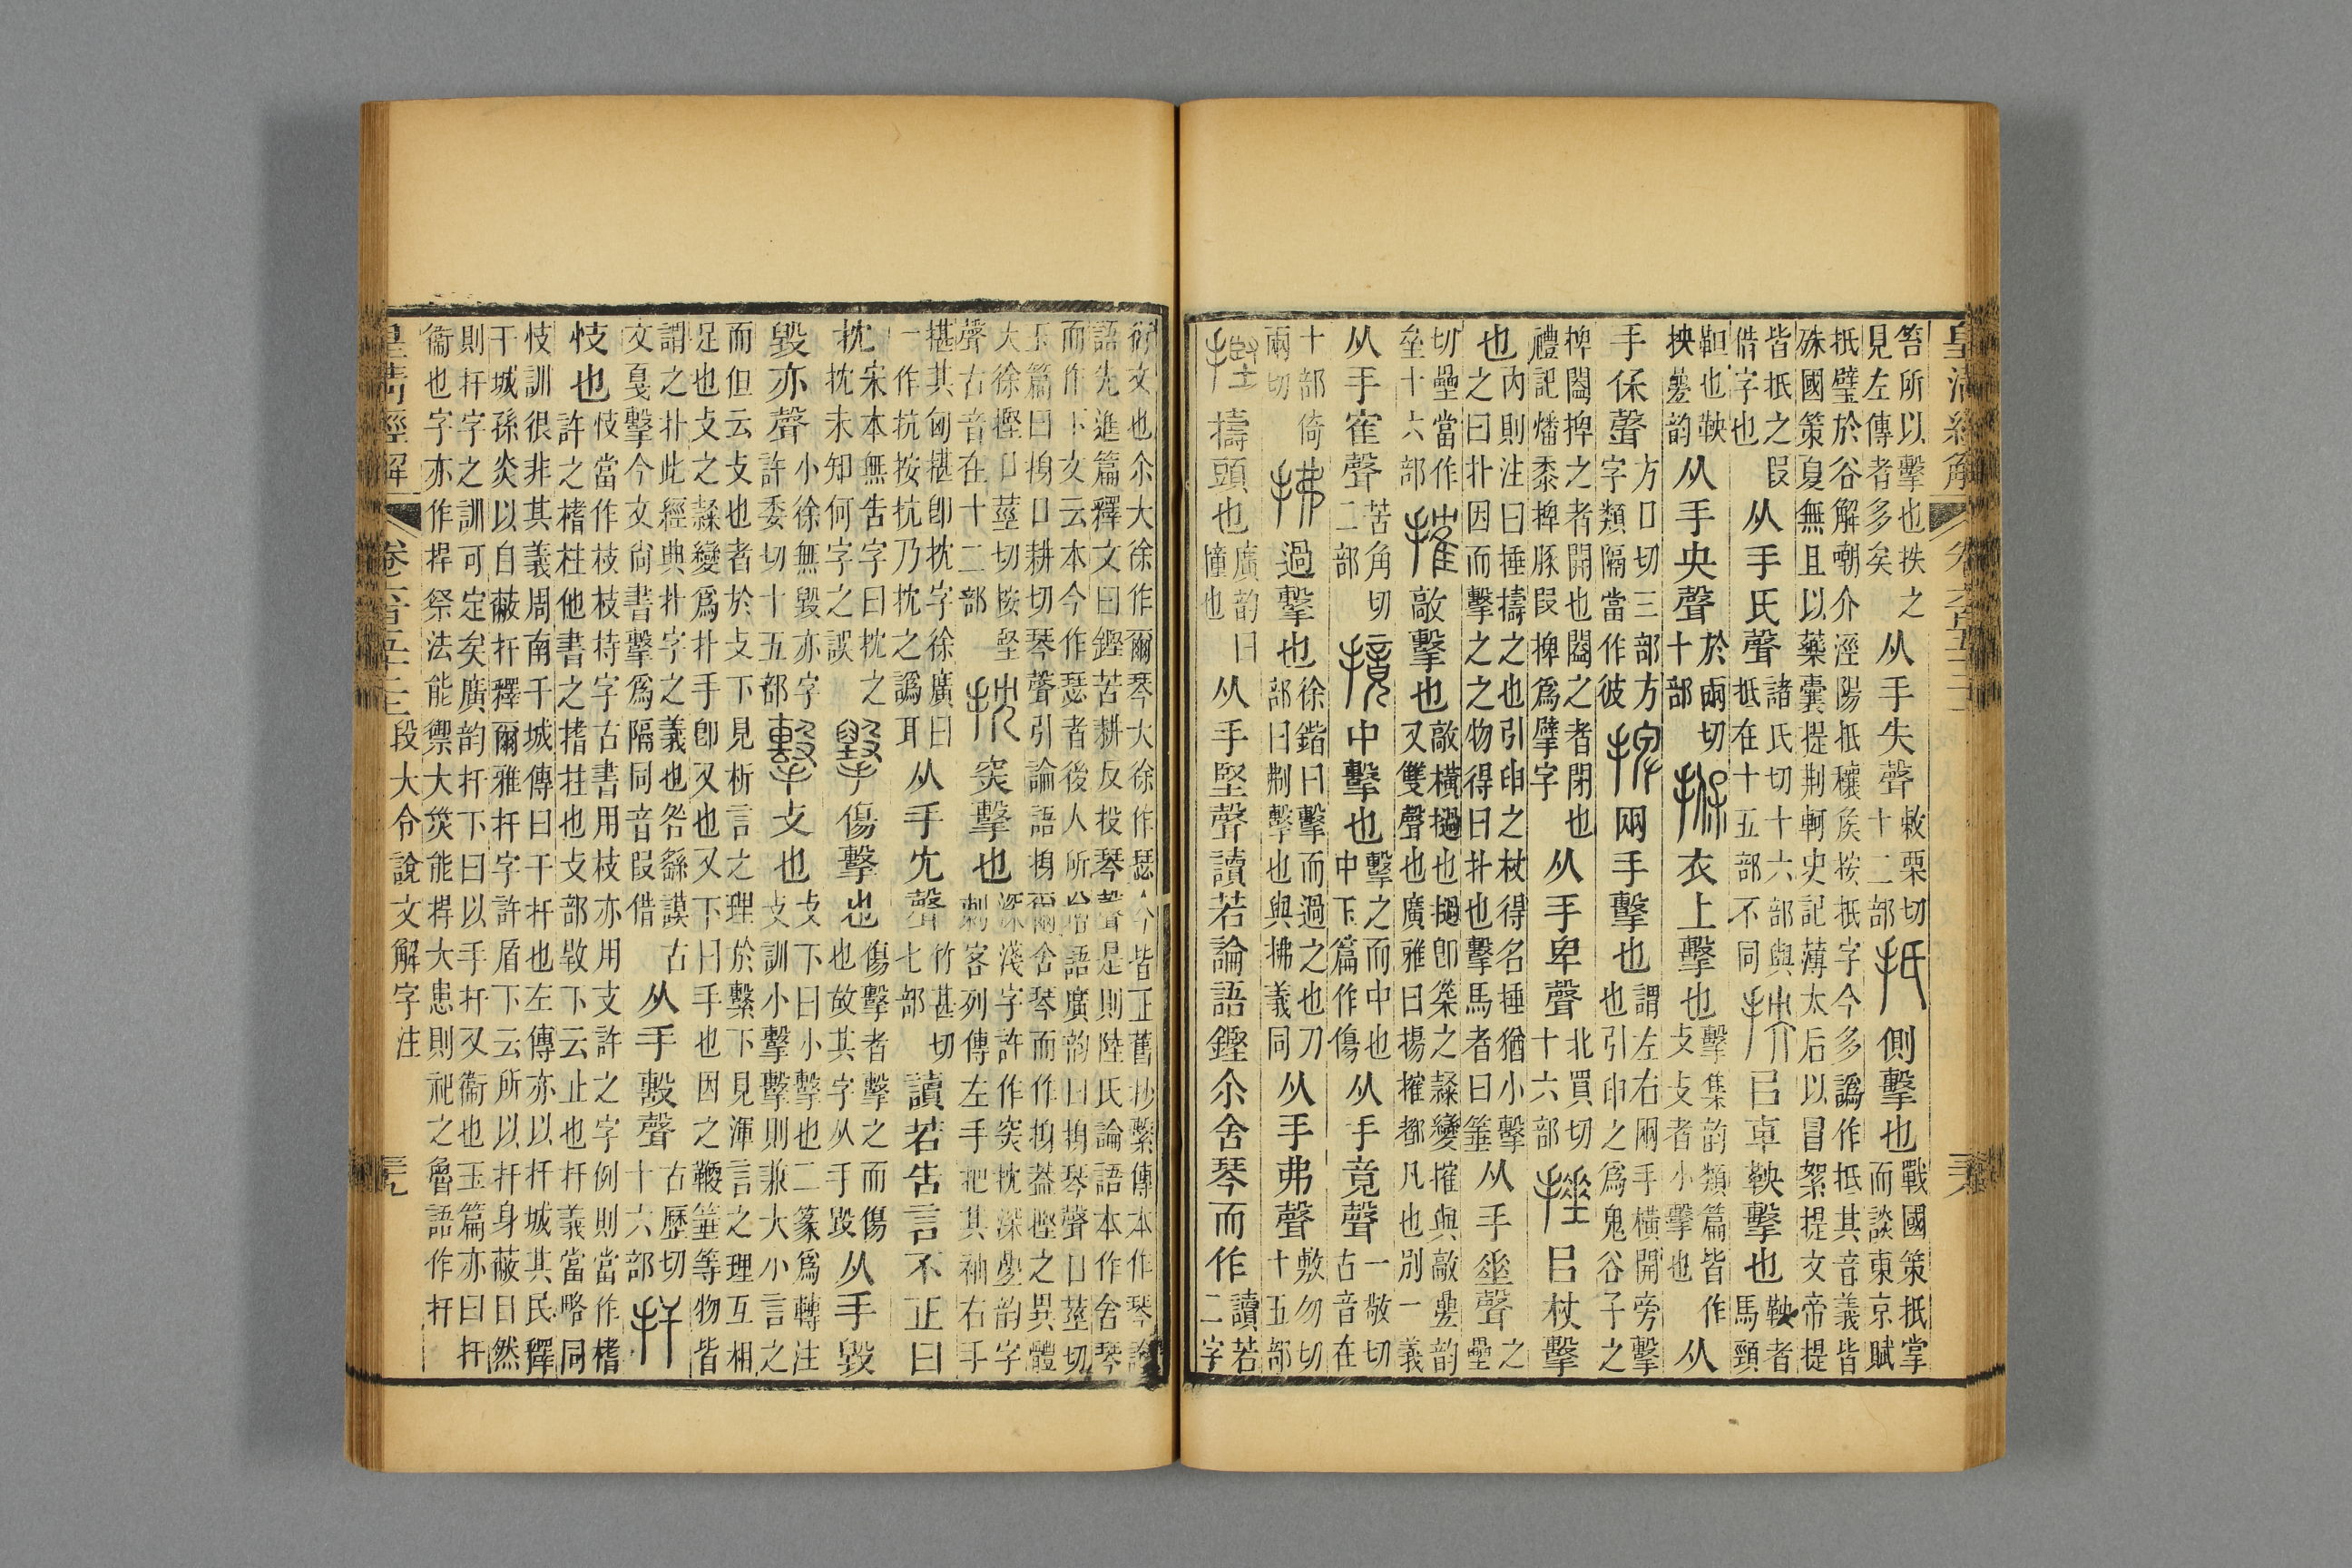 皇清經解
笞所以擊也抶之見左傳者多矣从手失聲敕栗切十二部抵側擊也戰國策抵掌而談東京賦
抵璧於谷解嘲介涇陽抵穰矦按抵字今多譌作抵其音義皆殊國策夏無且以藥囊提荆軻史記薄太后以冒絮提文帝提
皆抵之叚借字也从手氏聲諸氏切十六部與抵在十五部不同抰㠯車鞅擊也鞅者馬頸
靼也鞅抰曡韵从手央聲於兩切十部㨐衣上擊也擊集韵類篇皆作攴攴者小擊也从
手保聲方口切三部方字類隔當作彼捭兩手擊也謂左右兩手橫開旁擊也引申之爲鬼谷子之
捭闔捭之者開也闔之者閉也禮記燔黍捭豚叚捭爲擘字从手卑聲北買切十六部捶㠯杖擊
也內則注曰捶擣之也引申之杖得名捶猶小擊之曰扑因而擊之之物得曰扑也擊馬者曰箠从手垂聲之壘
切壘當作垒十六部搉敲擊也敲橫撾也撾卽之隷變搉與敲曡韵又雙聲也廣雅曰揚搉都凡也別一義
从手隺聲苦角切二部摬中擊也擊之而中也中下篇作傷从手竟聲一敬切古音在
十部倚兩切拂過擊也徐鍇曰擊而過之也刀部曰刜擊也與拂義同从手弗聲敷勿切十五部
摼擣頭也廣韵曰撞也从手堅聲讀若論語鏗尒舍琴而作讀若二字
衍文也尒大徐作爾琴大徐作瑟今皆正舊抄繫傳本作琴論語先進篇釋文曰鏗苦耕反投琴聲是則陸氏論語本作舍琴
而作下文云本今作瑟者後人所語廣韵曰琴聲口莖切玉篇曰口耕切琴聲引論語爾舍琴而作葢摼之異體
大徐摼口莖切按堅聲古音在十二部抌突擊也深淺字許作突抌深曡韵字刺客列傳左手把其袖右手
揕其匈揕卽抌字徐廣曰一作抗按抗乃抌之譌耳从手冘聲竹甚切七部讀若告言不正曰
抌宋本無告字曰抌之抌未知何字之誤傷擊也傷擊者擊之而傷也故其字从手毁从手毁
毁亦聲小徐無毁亦字許委切十五部擊攴也攴下曰小擊也二篆爲轉注攴訓小擊擊則兼大小言之
而但云攴也者於攴下見析言之理於擊下見渾言之理互相足也攴之隷變爲扑手卽又也又下曰手也因之鞭箠等物皆
謂之扑此經典扑字之義也咎繇謨古文戛擊今文尚書擊爲隔同音叚借从手毄聲古歷切十六部扞
忮也忮當作枝枝持字古書用枝亦用支許之字例則當作榰許之榰柱他書之搘拄也攴部下云止也扞義當略同
忮訓很非其義周南干城傳曰干扞也左傳亦以扞城其民釋干城孫炎以自蔽扞釋爾雅扞字許盾下云所以扞身蔽目然
則扞字之訓可定矣廣韵扞下曰以手扞又衞也玉篇亦曰扞衞也字亦作捍祭法能禦大烖能捍大患則祀之魯語作扞
皇清經解 卷六百五十三 段大令說文解字注